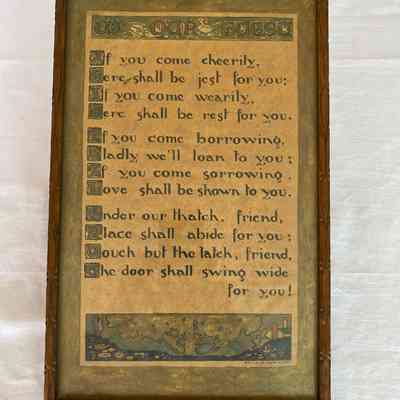 TO OUR GUEST
If you come cheerily,
Here shall be jest for you;
If you come wearily,
Here shall be rest for you.
If you come borrowing,
Gladly we'll loan to you;
If you come sorrowing,
Love shall be shown to you.
Under our thatch, friend,
Place shall abide for you;
Touch but the latch, friend,
The door shall swing wide
for you!